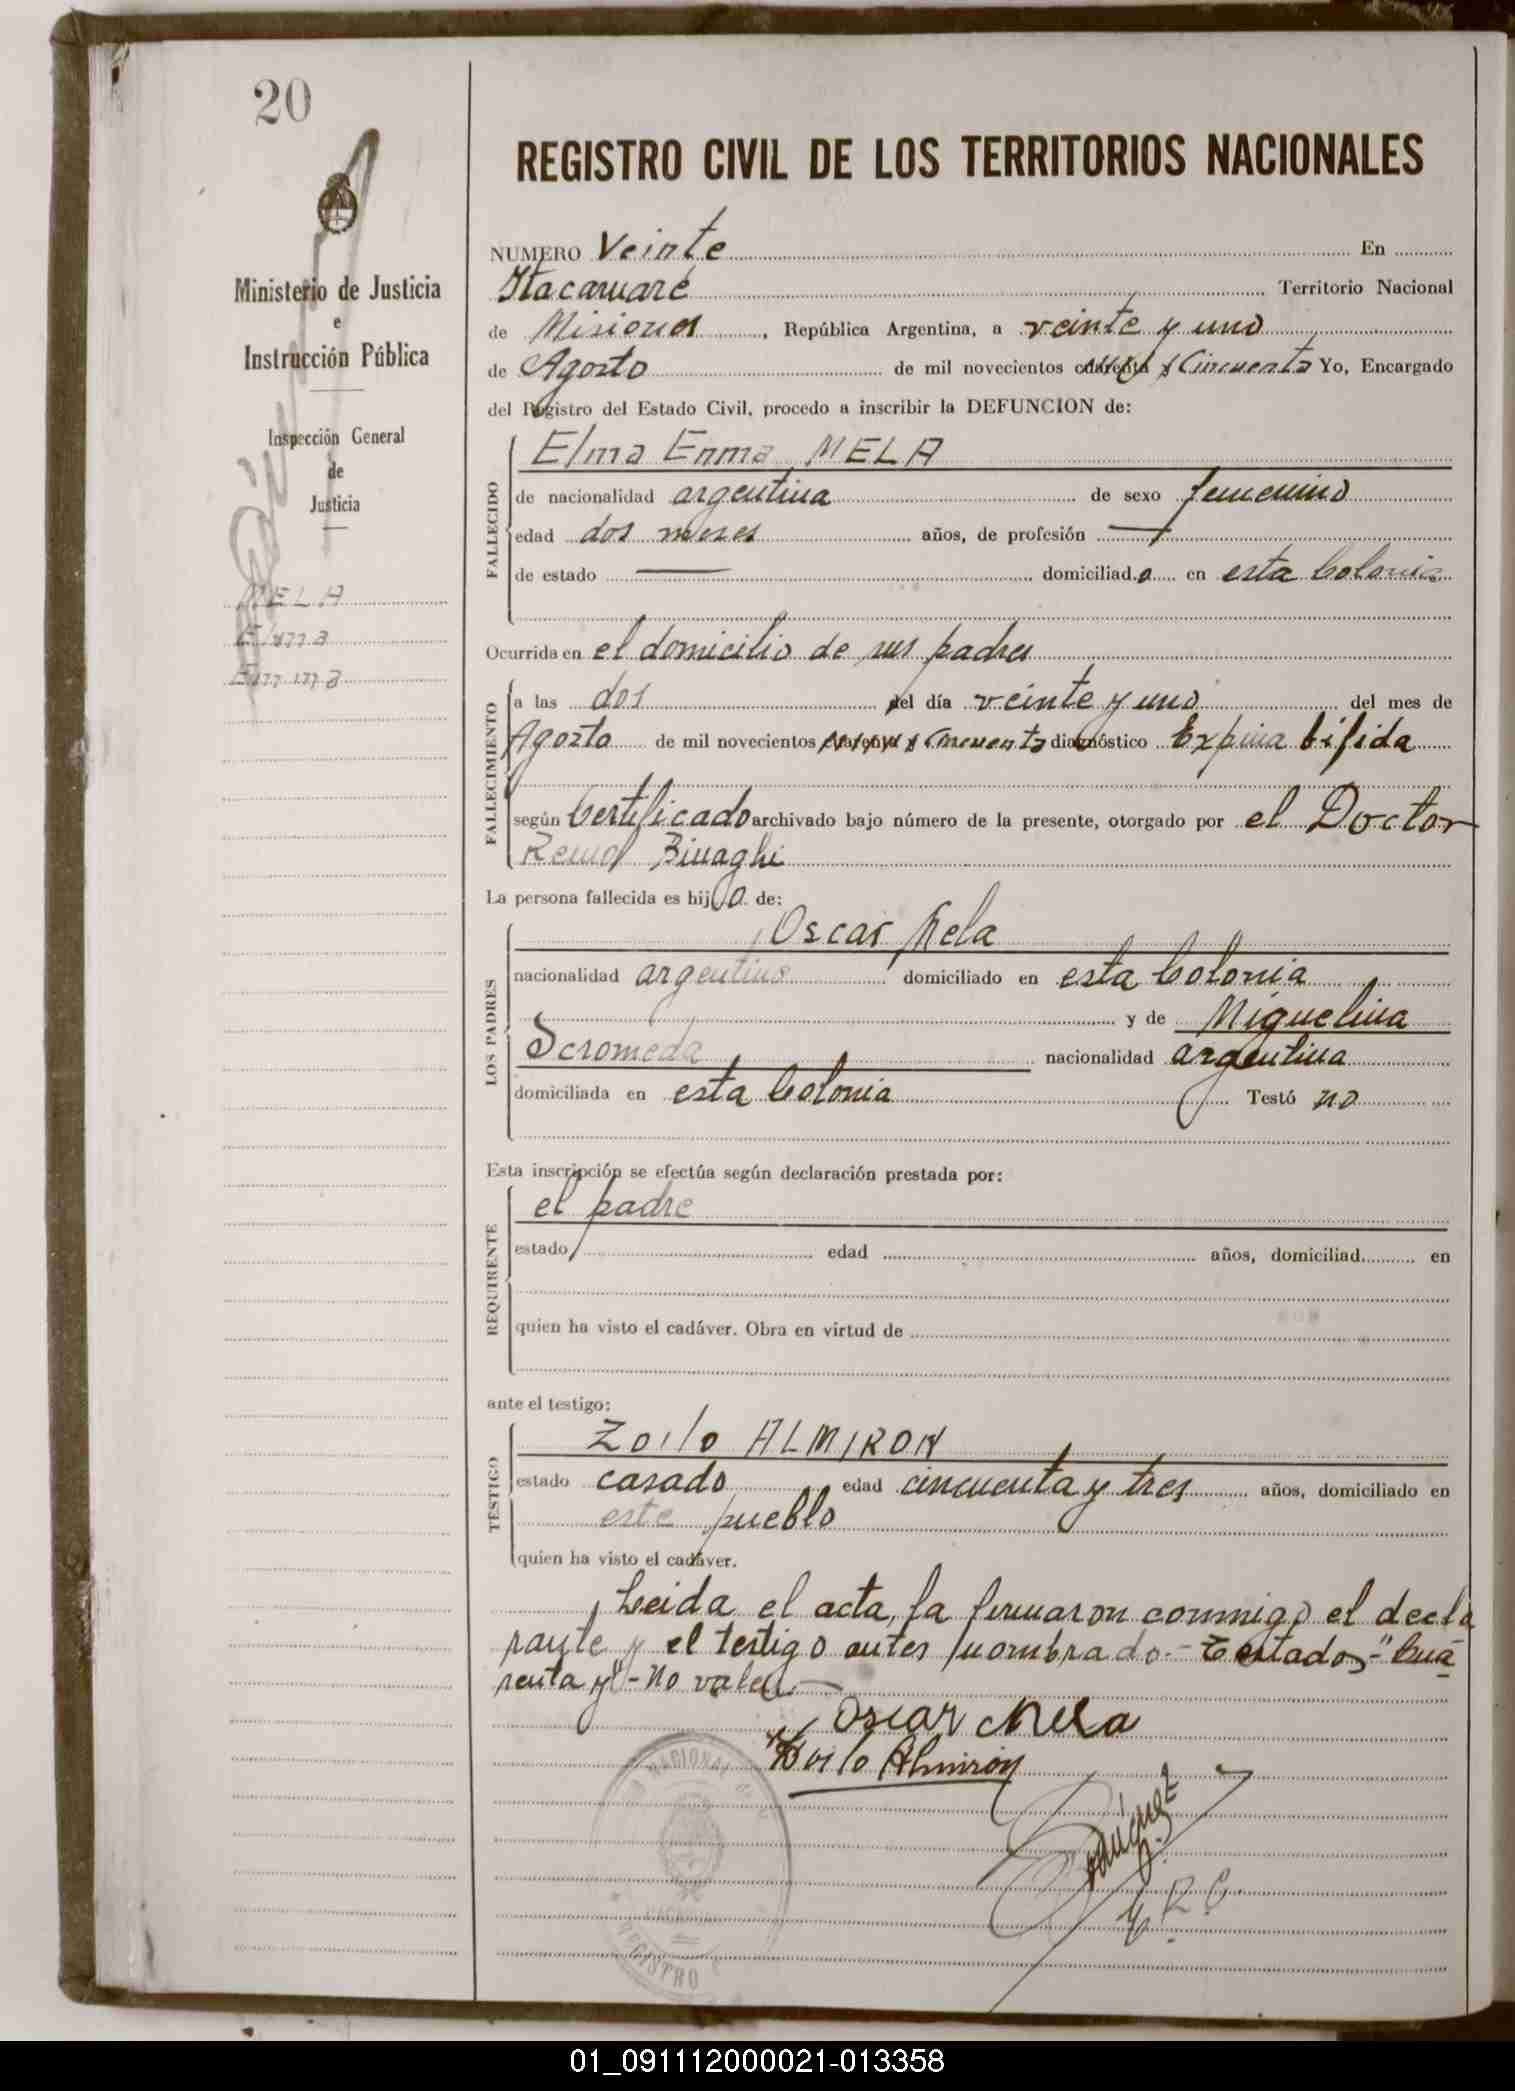 20
Ministerio de Justicia
e
Instrucción Pública
Inspección General
de
Justicia
MELA
Elma
Emma
REGISTRO CIVIL DE LOS TERRITORIOS NACIONALES
NUMERO Veinte En
Itacaruaré Territorio Nacional
de Misiones, República Argentina, a veinte y uno
de Agosto de mil novecientos cuarenta y Cincuenta Yo, Encargado
del Registro del Estado Civil, procedo a inscribir la DEFUNCION de:
FALLECIDO
Elma Enma MELA
de nacionalidad argentina de sexo femenino
edad dos meses años, de profesión —
de estado — domiciliad.a en esta Colonia
Ocurrida en el domicilio de sus padres
FALLECIMIENTO
a las dos del día veinte y uno del mes de
Agosto de mil novecientos cuarenta y Cincuenta diagnóstico Expina bífida
según Certificado archivado bajo número de la presente, otorgado por el Doctor
Remo Binaghi
La persona fallecida es hija de:
LOS PADRES
Oscar Mela
nacionalidad argentino domiciliado en esta Colonia
y de Miguelina
Scromeda nacionalidad argentina
domiciliada en esta Colonia Testó no
Esta inscripción se efectúa según declaración prestada por:
REQUIRENTE
el padre
estado edad años, domiciliad en
quien ha visto el cadáver. Obra en virtud de
ante el testigo:
TESTIGO
Zoilo ALMIRON
estado casado edad cincuenta y tres años, domiciliado en
este pueblo
quien ha visto el cadáver.
Leida el acta, la firmaron conmigo el decla
rante y el testigo antes nombrado.- Testado,-"Cua
renta y"- no vale.—
Oscar Mela
Zoilo Almirón
Sánchez
E. R. C.
NACIONAL
REGISTRO
01_091112000021-013358